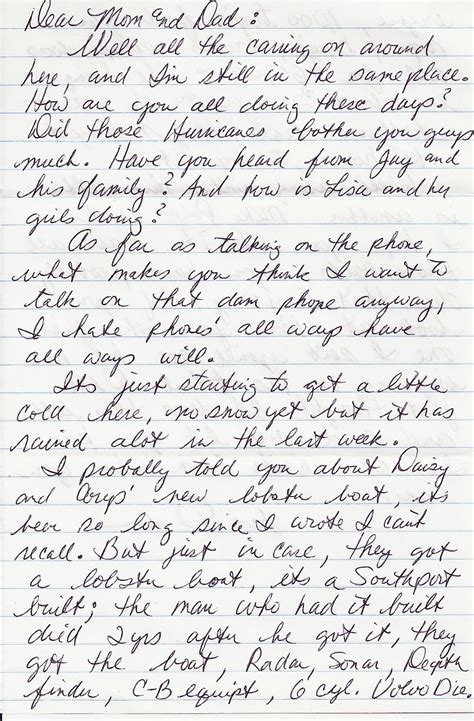 Dear Mom and Dad:
Well all the caring on around
here, and I'm still in the same place.
How are you all doing these days?
Did those Hurricanes bother you guys
much. Have you heard from Jay and
his family? And how is Lisa and her
girls doing?
As far as talking on the phone,
what makes you think I want to
talk on that dam phone anyway,
I hate phones' all ways have
all ways will.
Its just starting to get a little
cold here, no snow yet but it has
rained alot in the last week.
I probally told you about Daisy
and new lobstu boat, its
bear so long since I wrote I can't
recall. But just in case, they got
a lobstu boat, its a Southport
built; the man who had it built
died 2yrs after he got it, they
got the boat, Radar, Sonar, Depth
finder, C-B equipt, 6 cyl. Volvo Die.